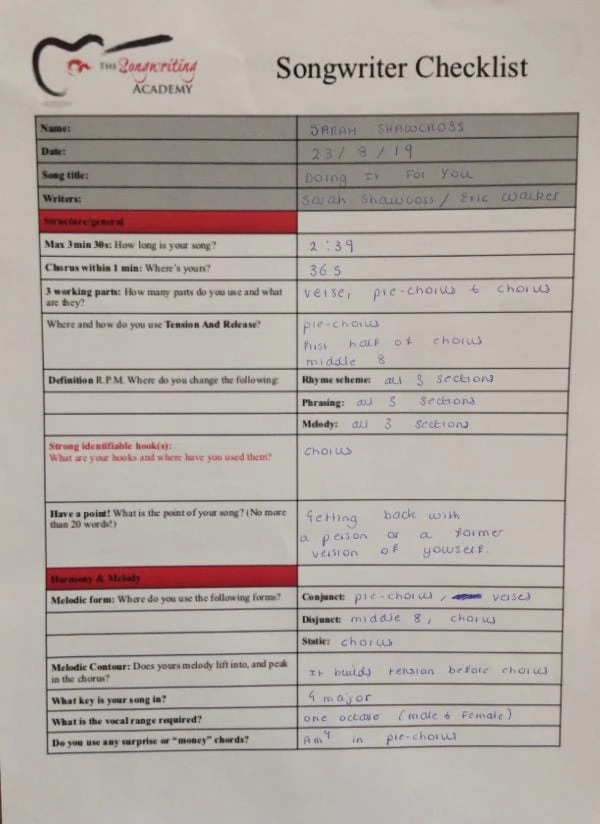 THE Songwriting
ACADEMY
Songwriter Checklist
Name: SARAH SHAWCROSS
Date: 23/8/19
Song title: Doing It For You
Writers: Sarah Shawcross / Eric Walker
Structure/general
Max 3min 30s: How long is your song? 2:39
Chorus within 1 min: Where's yours? 36s
3 working parts: How many parts do you use and what are they? verse, pre-chorus & chorus
Where and how do you use Tension And Release? pre-chorus
First half of chorus
middle 8
Definition R.P.M. Where do you change the following: Rhyme scheme: all 3 sections
Phrasing: all 3 sections
Melody: all 3 sections
Strong identifiable hook(s):
What are your hooks and where have you used them? chorus
Have a point! What is the point of your song? (No more than 20 words!) Getting back with
a person or a former
version of yourself.
Harmony & Melody
Melodic form: Where do you use the following forms? Conjunct: pre-chorus, verses
Disjunct: middle 8, chorus
Static: chorus
Melodic Contour: Does yours melody lift into, and peak in the chorus? It builds tension before chorus
What key is your song in? G major
What is the vocal range required? one octave (male & Female)
Do you use any surprise or "money" chords? in pre-chorus